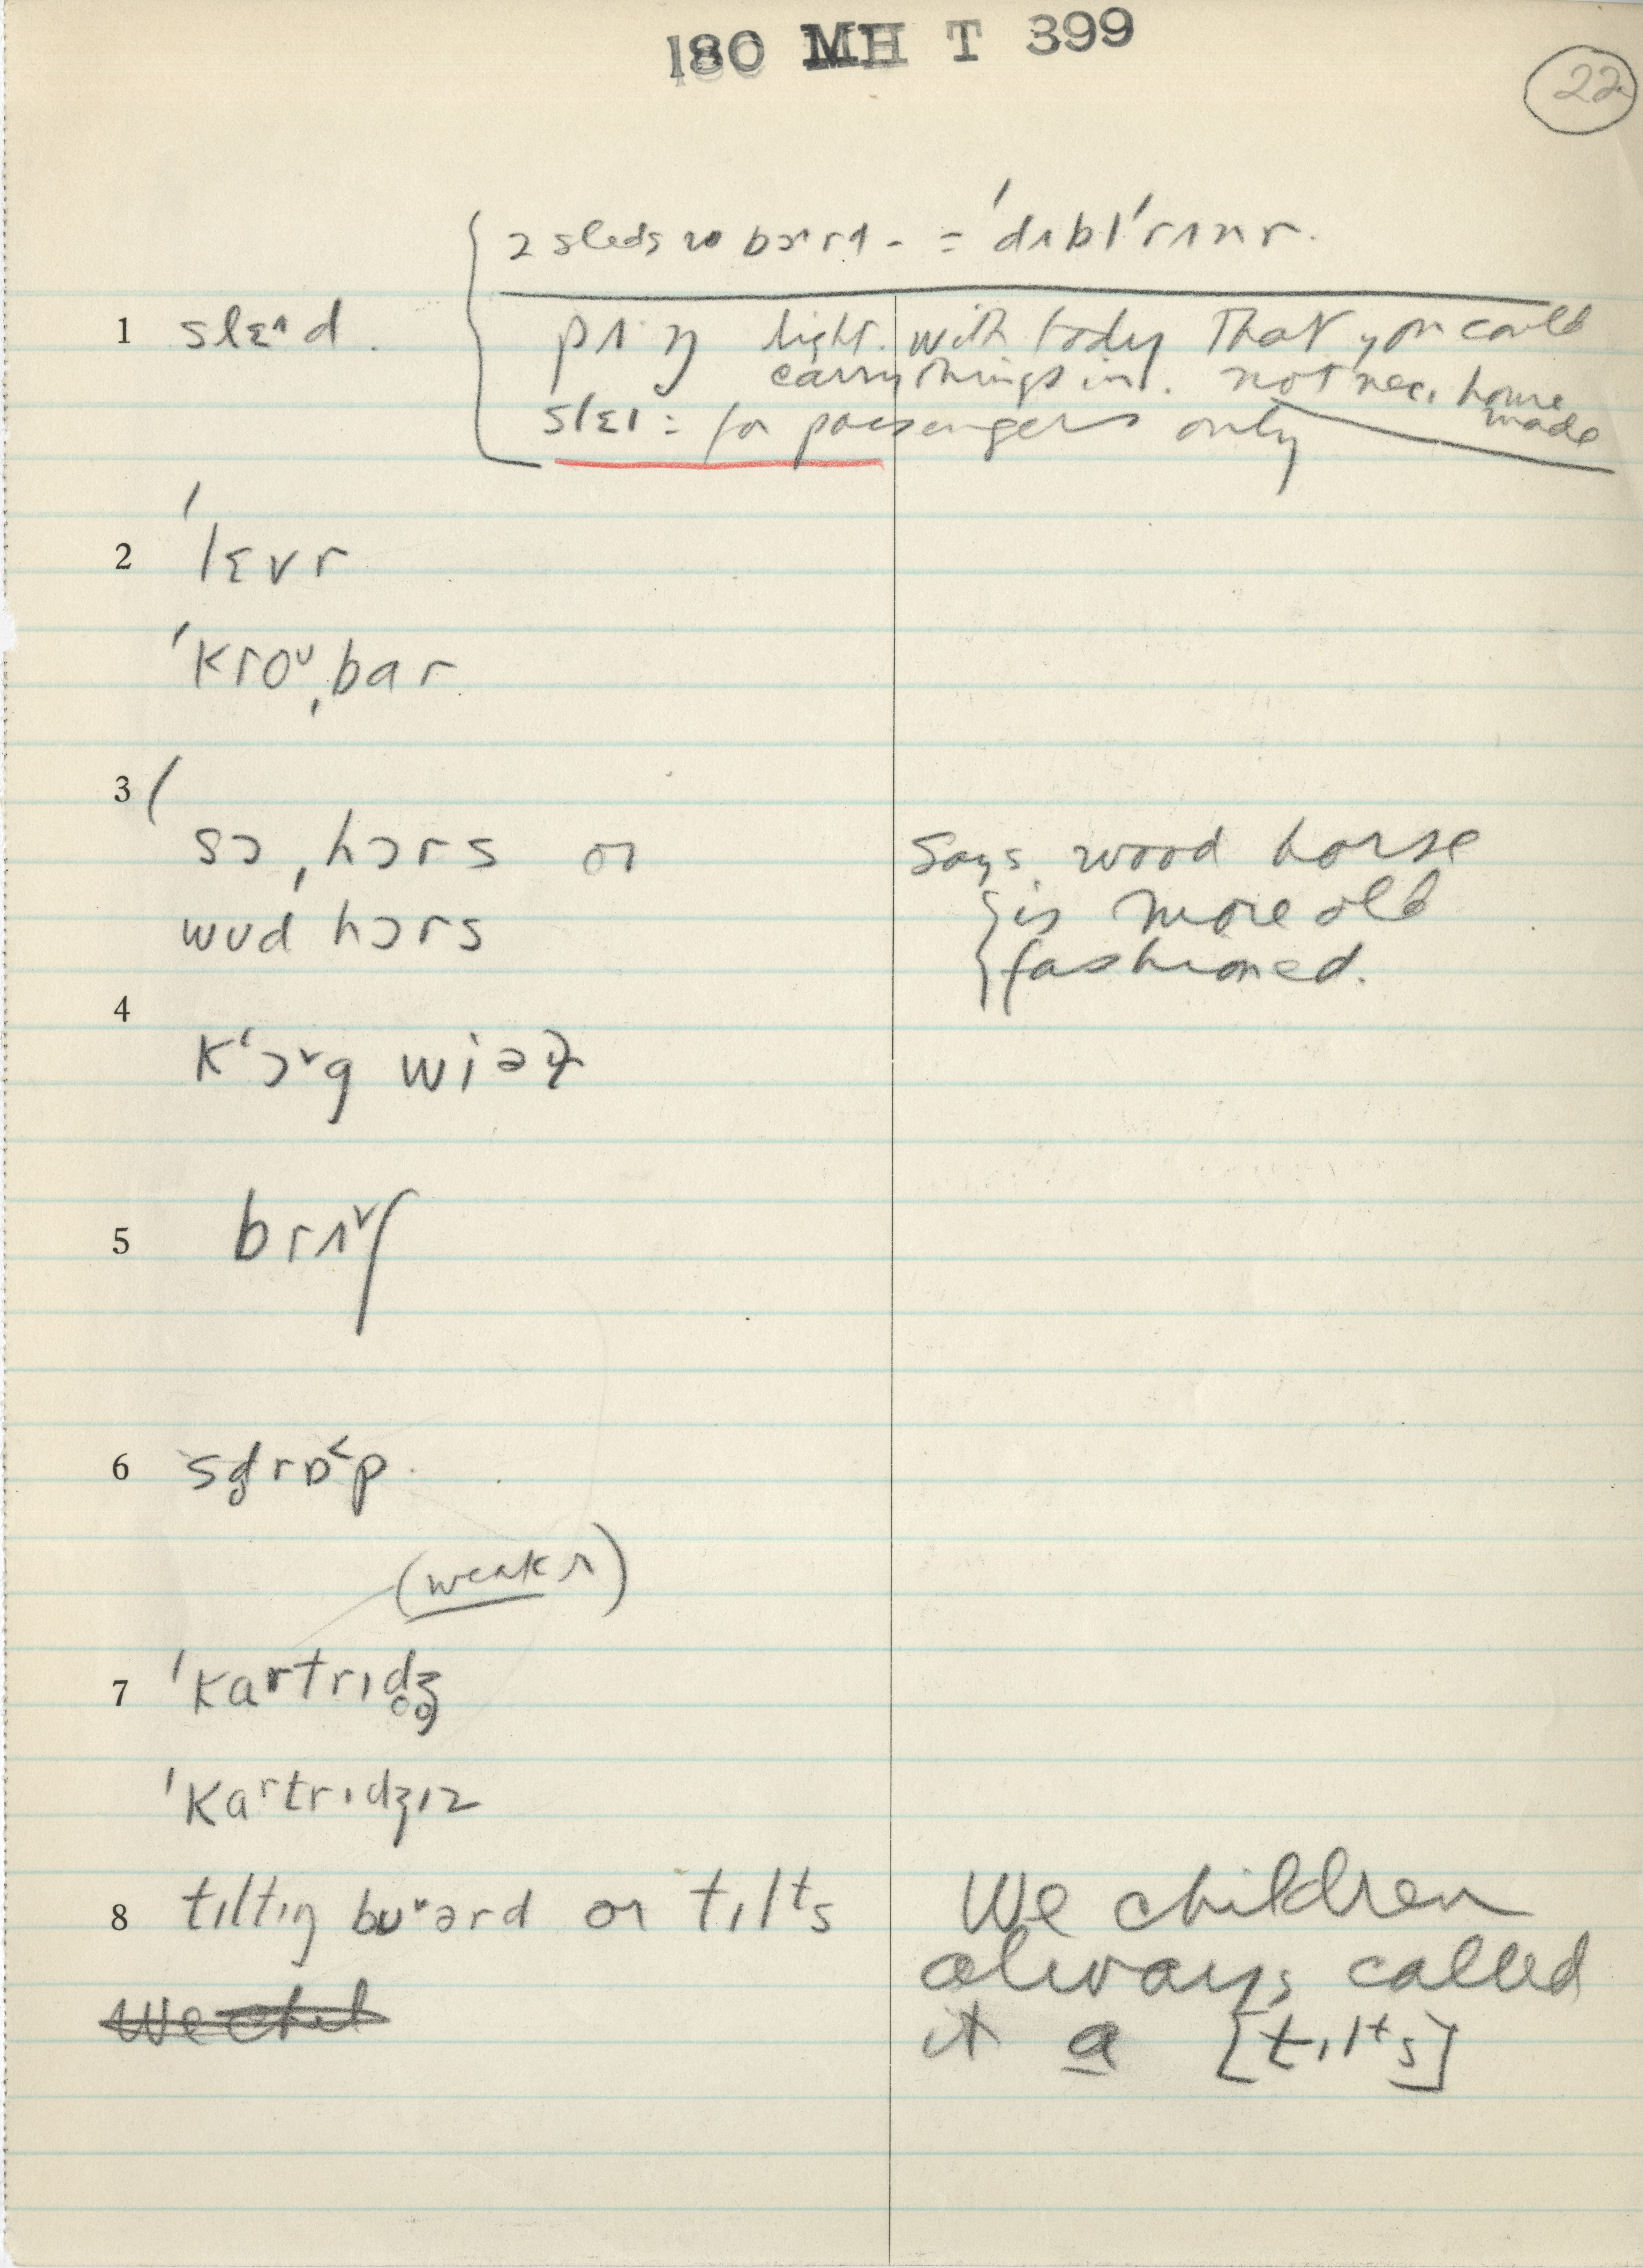 180 MH T 399
22
2 sleds w bɔrd - = 'dʌbl'rʌnr.
1 slɛ^d.
pʌŋ light. with body that you could
carry things in. not nec. home
made
slɛɪ = for passengers only
2 'lɛvr
'kroᴜˌbar
3 'sɔˌhɔrs or
wᴜd hɔrs
Says wood horse
is more old
fashioned.
4
k'ɔ˅g wiəɫ
5 brʌ˅ʃ
6 sd̥rɒ˂p.
(weak r)
7 'kartrɪd̥ʒ̊
'kaʳtrɪdʒɪz
8 tɪltɪŋ bᴜ˅ərd or tɪlᵗs
We chil
We children
always called
it a [tɪlᵗs]